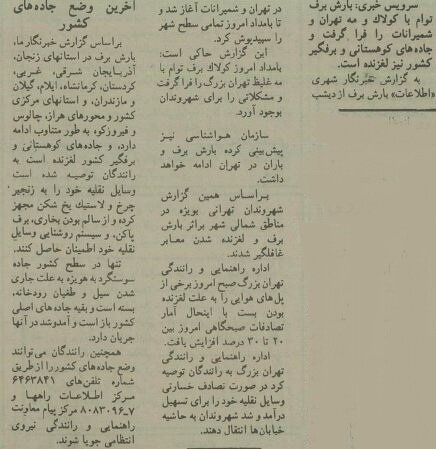 سرویس خبری: بارش برف
توام با کولاک و مه تهران و
شمیرانات را فرا گرفت و
جاده‌های کوهستانی و برفگیر
کشور نیز لغزنده است.
به گزارش خبرنگار شهری
«اطلاعات» بارش برف از دیشب
در تهران و شمیرانات آغاز شد و
تا بامداد امروز تمامی سطح شهر
را سپیدپوش کرد.
این گزارش حاکی است:
بامداد امروز کولاک برف توام با
مه غلیظ تهران بزرگ را فرا گرفت
و مشکلاتی را برای شهروندان
بوجود آورد.
سازمان هواشناسی نیز
پیش‌بینی کرده بارش برف و
باران در تهران ادامه خواهد
داشت.
براساس همین گزارش
شهروندان تهرانی بویژه در
مناطق شمالی شهر براثر بارش
برف و لغزنده شدن معابر
غافلگیر شدند.
اداره راهنمایی و رانندگی
تهران بزرگ صبح امروز برخی از
پل‌های هوایی را به علت لغزنده
بودن بست با اینحال آمار
تصادفات صبحگاهی امروز بین
۲۰ تا ۳۰ درصد افزایش یافت.
اداره راهنمایی و رانندگی
تهران بزرگ به رانندگان توصیه
کرد در صورت تصادف خسارتی
وسایل نقلیه خود را برای تسهیل
درآمد و شد شهروندان به حاشیه
خیابان‌ها انتقال دهند.
آخرین وضع جاده‌های
کشور
براساس گزارش خبرنگار ما،
بارش برف در استانهای زنجان،
آذربایجان شرقی، غربی،
کردستان، کرمانشاه، ایلام، گیلان
و مازندران، و استانهای مرکزی
کشور و محورهای هراز، چالوس
و فیروزکوه به طور متناوب ادامه
دارد، و جاده‌های کوهستانی و
برفگیر کشور لغزنده است به
رانندگان توصیه شده است
وسایل نقلیه خود را به زنجیر
چرخ و لاستیک یخ شکن مجهز
کرده و از سالم بودن بخاری، برف
پاکن، و سیستم روشنایی وسایل
نقلیه خود اطمینان حاصل کنند.
تنها در سطح کشور جاده
سوسنگرد به هویزه به علت جاری
شدن سیل و طغیان رودخانه،
بسته است و بقیه جاده‌های اصلی
کشور باز است و آمدوشد در آنها
جریان دارد.
همچنین رانندگان می‌توانند
وضع جاده‌های کشور را از طریق
شماره تلفن‌های ۶۴۶۳۸۴۱
مرکز اطلاعات راهها و
۷ـ۸۰۸۳۰۹۶ مرکز پیام معاونت
راهنمایی و رانندگی نیروی
انتظامی جویا شوند.